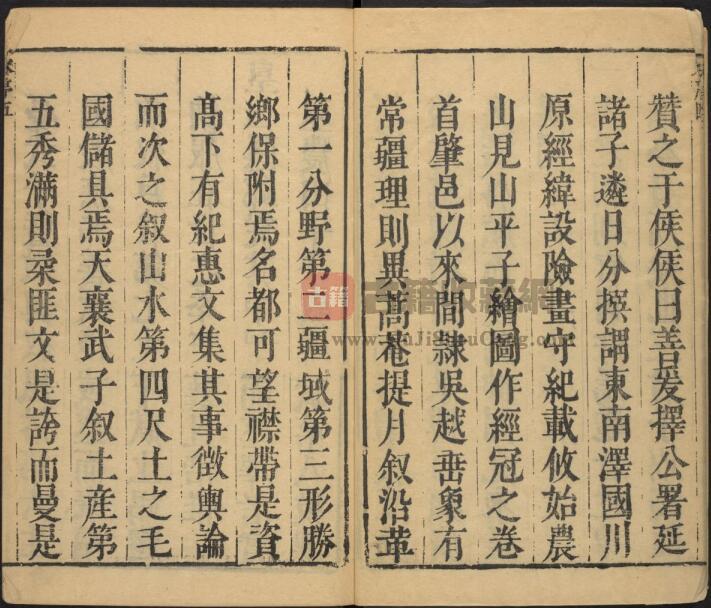 贊之于侯侯曰善爰擇公署延
諸子遴日分撰謂東南澤國川
原經緯設險畫守紀載攸始農
山見山平子繪圖作經冠之卷
首肇邑以來間隷吳越垂象有
常疆理則異髙菴提月叙沿革
第一分野第二疆域第三形勝
鄉保附焉名都可望襟帶是資
髙下有紀惠文集其事徴輿論
而次之叙山水第四尺土之毛
國儲具焉天襄武子叙土産第
五秀滿則采匪文是誇而曼是
古籍
古籍收藏網